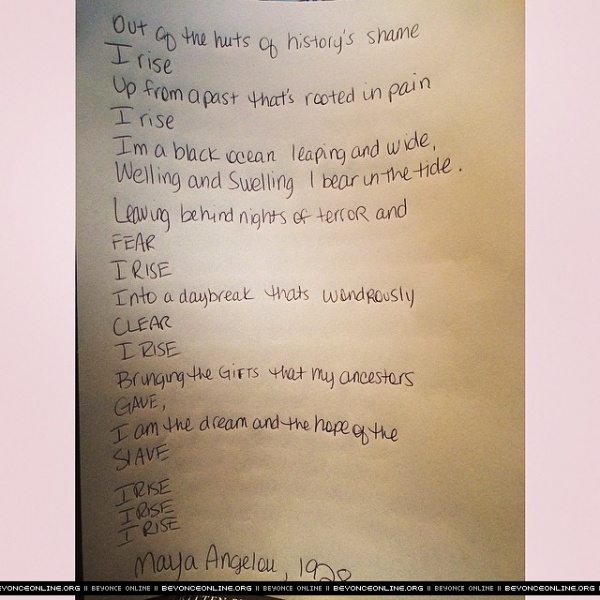 Out of the huts of history's shame
I rise
Up from a past that's rooted in pain
I rise
I'm a black ocean leaping and wide,
Welling and Swelling I bear in the tide.
Leaving behind nights of terror and
FEAR
I RISE
Into a daybreak thats wondrously
CLEAR
I RISE
Bringing the GIFTS that my ancestors
GAVE,
I am the dream and the hope of the
SLAVE
I RISE
I RISE
I RISE
Maya Angelou, 1928
BEYONCEONLINE.ORG || BEYONCE ONLINE || BEYONCEONLINE.ORG || BEYONCE ONLINE || BEYONCEONLINE.ORG || BEYONCE ONLINE || BEYONCEONLINE.ORG